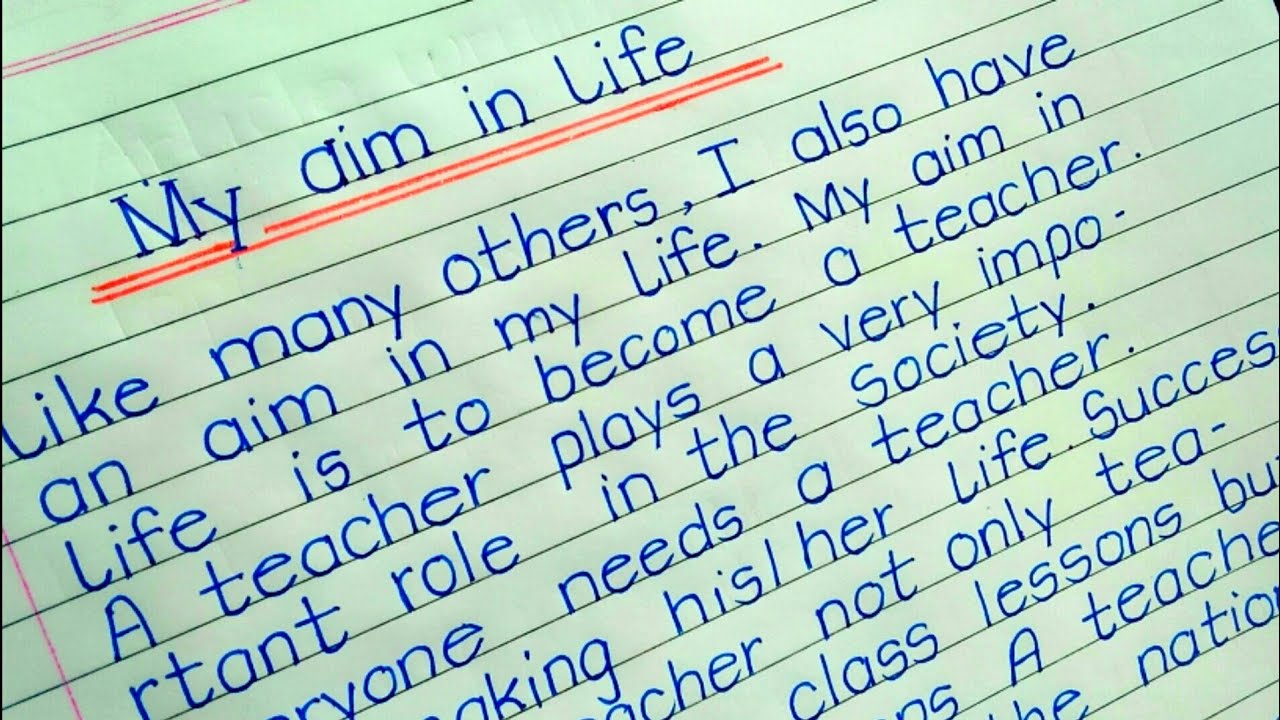 My aim in Life
Like many others, I also have
an aim in my life. My aim in
Life is to become a teacher.
A teacher plays a very impo-
rtant role in the society.
needs a teacher.
his/her Life. Succes
not only tea-
class lessons
A
the